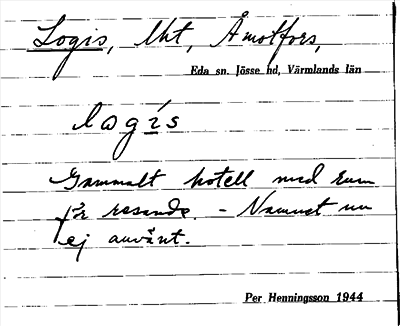 Logis, Uht, Åmotfors,
Eda sn. Jösse hd, Värmlands län
logis
Gammalt hotell med rum
för resande. - Namnet nu
ej använt.
Per Henningsson 1944